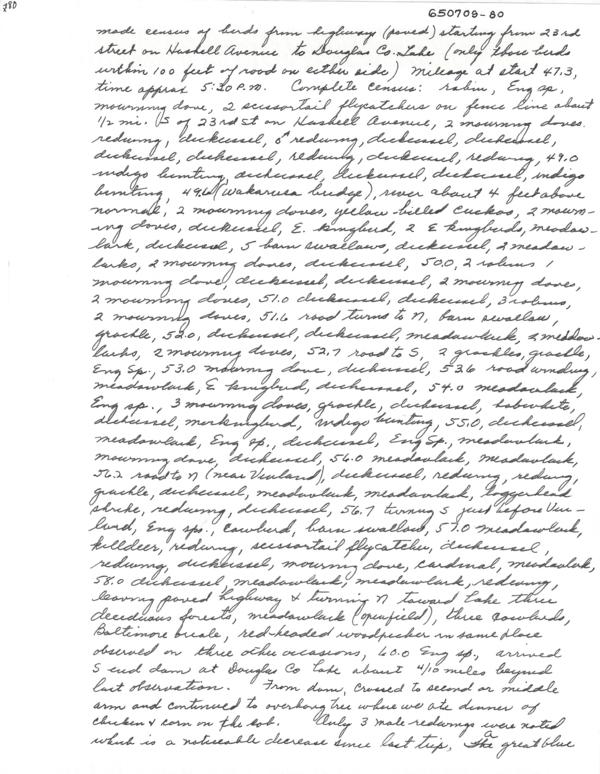 280
650709-80
made census of birds from highway (paved) starting from 23rd
street on Haskell Avenue to Douglas Co. Lake (only those birds
within 100 feet of road on either side) Mileage at start 47.3,
time approx 5:20 P.M. Complete census: robin, Eng sp,
mourning dove, 2 scissortail flycatchers on fence line about
1/2 mi. S of 23rd st on Haskell Avenue, 2 mourning doves.
redwing, dickcissel, ♂ redwing, dickcissel, dickcissel,
dickcissel, dickcissel, redwing, dickcissel, redwing, 49.0
indigo bunting, dickcissel, dickcissel, dickcissel, indigo
bunting, 49.6 (Wakarusa bridge), river about 4 feet above
normal, 2 mourning doves, yellow billed cuckoo, 2 mourn-
ing doves, dickcissel, E. kingbird, 2 E kingbirds, meadow-
lark, dickcissel, 5 barn swallows, dickcissel, 2 meadow-
larks, 2 mourning doves, dickcissel, 50.0, 2 robins 1
mourning dove, dickcissel, dickcissel, 2 mourning doves,
2 mourning doves, 51.0 dickcissel, dickcissel, 3 robins,
2 mourning doves, 51.6 road turns to N, barn swallow,
grackle, 52.0, dickcissel, dickcissel, meadowlark, 2 meadow-
larks, 2 mourning doves, 52.7 road to S, 2 grackles, grackle,
Eng Sp., 53.0 mourning dove, dickcissel, 53.6 road winding,
meadowlark, E kingbird, dickcissel, 54.0 meadowlark,
Eng sp., 3 mourning doves, grackle, dickcissel, bobwhite,
dickcissel, mockingbird, indigo bunting, 55.0, dickcissel,
meadowlark, Eng sp., dickcissel, Eng Sp., meadowlark,
mourning dove, dickcissel, 56.0 meadowlark, meadowlark,
56.2 road to N (near Vinland), dickcissel, redwing, redwing,
grackle, dickcissel, meadowlark, meadowlark, loggerhead
shrike, redwing, dickcissel, 56.7 turning S just before Vin-
land, Eng sp., cowbird, barn swallow, 57.0 meadowlark,
killdeer, redwing, scissortail flycatcher, dickcissel,
redwing, dickcissel, mourning dove, cardinal, meadowlark,
58.0 dickcissel, meadowlark, meadowlark, redwing,
leaving paved highway & turning N toward Lake thru
deciduous forests, meadowlark (open field), three cowbirds,
Baltimore oriole, red-headed woodpecker in same place
observed on three other occasions, 60.0 Eng sp., arrived
S end dam at Douglas Co Lake about 4/10 miles beyond
last observation. From dam, crossed to second or middle
arm and continued to overhang tree where we ate dinner of
chicken & corn on the cob. Only 3 male redwings were noted
which is a noticeable decrease since last trip, a great blue